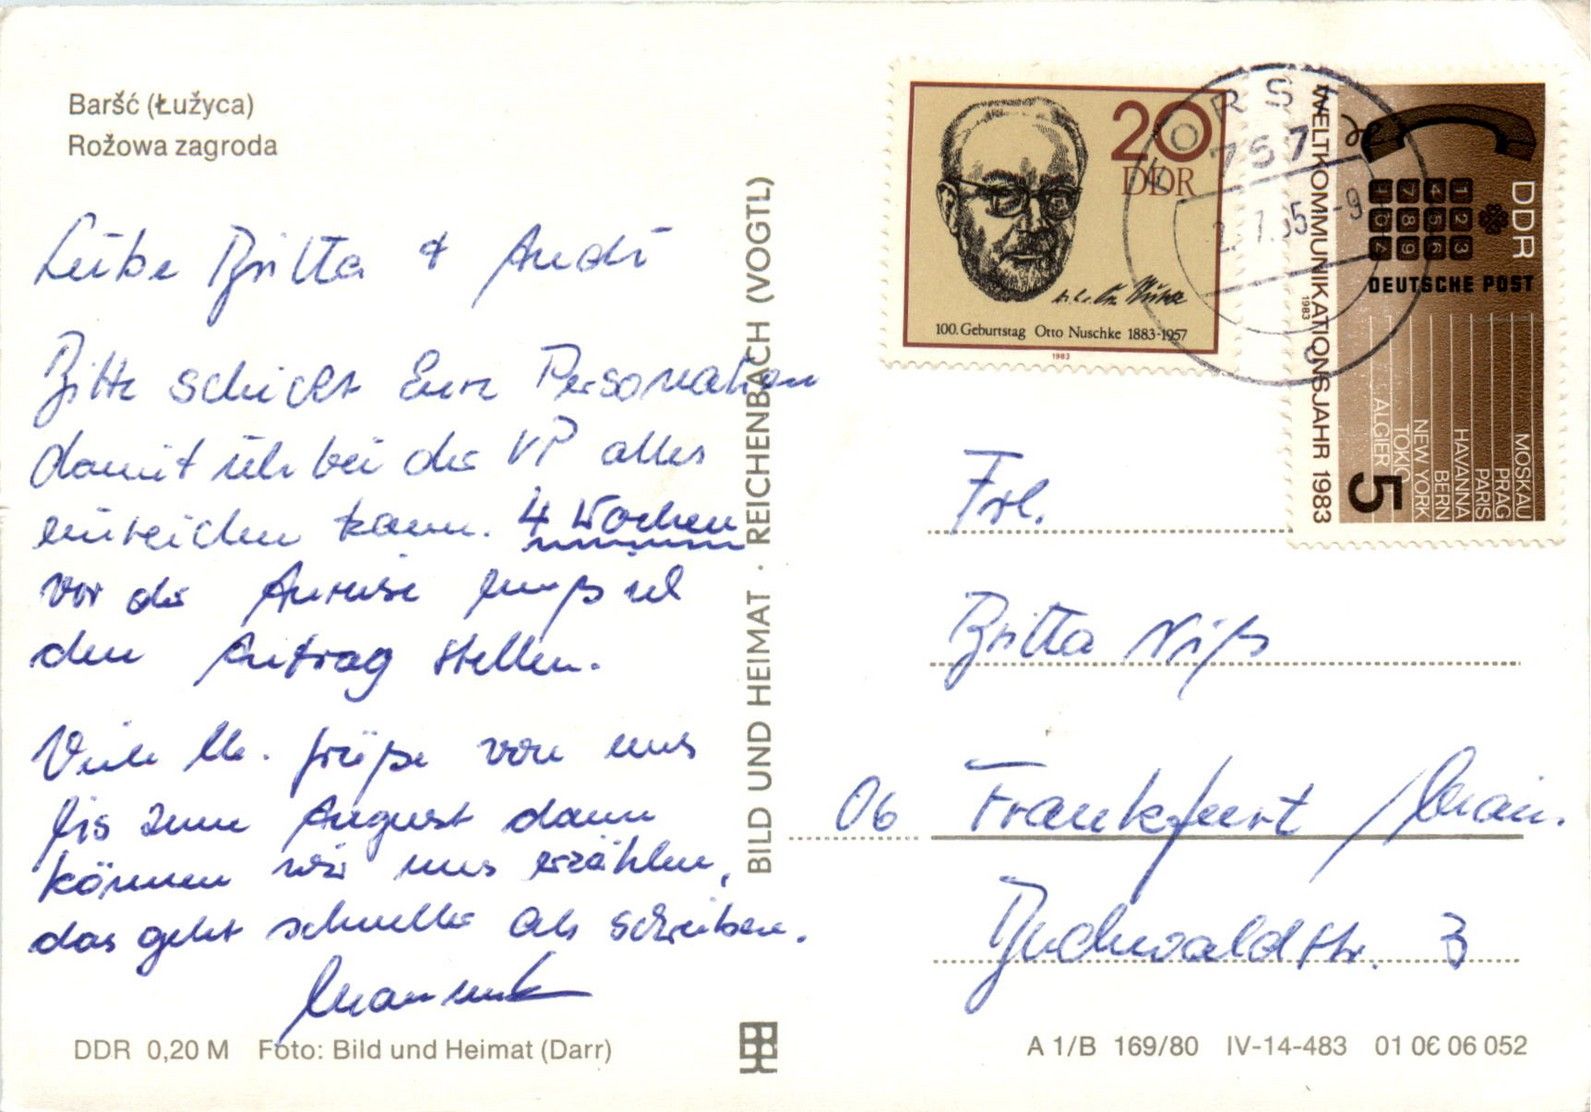 Baršć (Łužyca)
Rožowa zagroda
Liebe Britta & Andi
Bitte schickt Eure Personalien
damit ich bei der VP alles
einreichen kann. 4 Wochen
vor der Anreise muß ich
den Antrag stellen.
Viele lb. Grüße von uns
Bis zum August dann
können wir uns erzählen,
das geht schneller als schreiben.
DDR 0,20 M Foto: Bild und Heimat (Darr)
BILD UND HEIMAT · REICHENBACH (VOGTL)
20
DDR
100. Geburtstag Otto Nuschke 1883-1957
1983
FORST
757
WELTKOMMUNIKATIONSJAHR 1983
1983
DDR
1 2 3
4 5 6
7 8 9
DEUTSCHE POST
MOSKAU
PRAG
PARIS
HAVANNA
BERN
NEW YORK
TOKIO
ALGIER
5
Frl.
Britta Niß
06 Frankfurt / Main.
Buchwaldstr. 3
A 1/B 169/80 IV-14-483 01 06 06 052